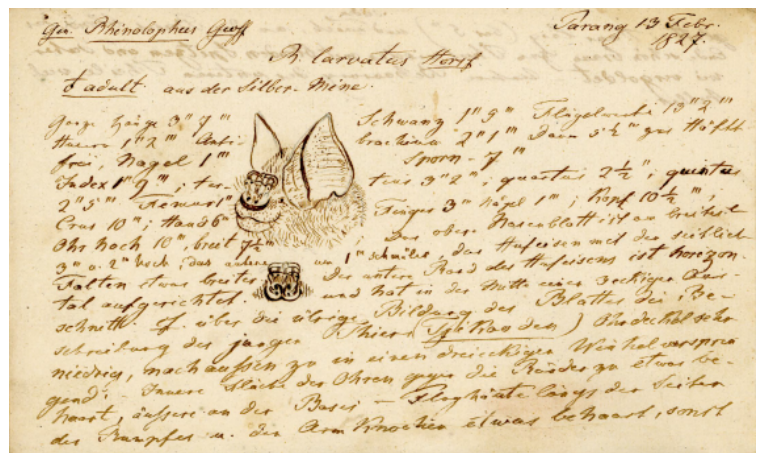 Gen. Rhinolophus Geoff Parang 13 Febr.
1827.
R. larvatus Horsf
adult aus der Silber-Mine
Länge 3" 7''' Schwanz 1" 9''' 13" 2'''
1" 2''' brachium 2" 1''' Daum 5 ½''' zur Hälfte
frei, Nagel 1''' Sporn 7'''
Index 1" 9'''; ter- tius 3" 2'''; quartus 2 ½"; quintus
2" 5''' Femur 1" Finger 3''' Nägel 1'''; Kopf 10 ½''';
Crus 10'''; Hand 6'''; Das obere Nasenblatt ist am breitest
Ohr hoch 10''', breit 7½'''
3''' u. 2''' hoch; das untere um 1''' schmäler das Hufeisen mit den seitlich
Falten etwas breiter. Der untere Rand des Hufeisens ist horizon-
tal aufgerichtet. und hat in der Mitte einen eckigen Aus-
schnitt. über die übrige Bildung des Blattes die Be-
schreibung des jungen Thiers Ohrdeckel sehr
niedrig, nach aussen zu in einen dreieckigen Winkel vorsprin
gend. - Innere Fläche der Ohren gegen die Ränder zu etwas be-
haart, äussere an der Basis - Flughäute längs der Seiten
des Rumpfes u. der Arm Knochen etwas behaart, sonst